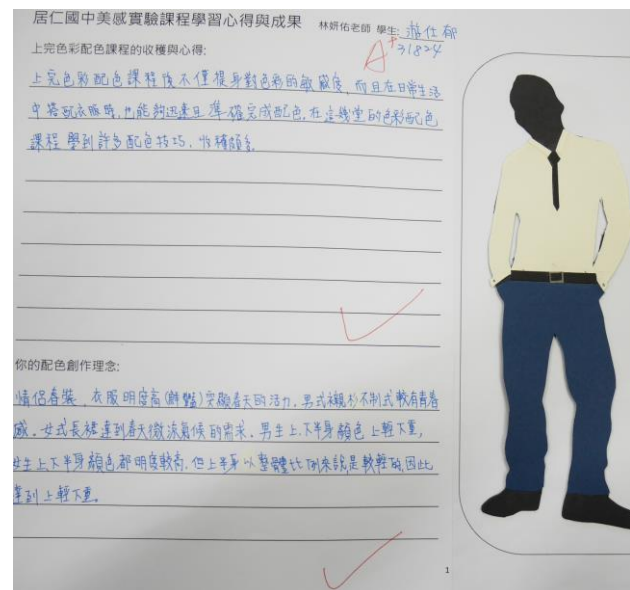 居仁國中美感實驗課程學習心得與成果 林妍佑老師 學生: 游仕郁
A+ 31824
上完色彩配色課程的收穫與心得:
上完色彩配色課程後不僅提身對色彩的敏感度,而且在日常生活
中搭配衣服時,也能夠迅速且準確完成配色.在這幾堂的色彩配色
課程學到許多配色技巧,收穫頗多.
你的配色創作理念:
情侶春裝,衣服明度高(鮮豔)突顯春天的活力,男式襯衫不制式較有青春
感.女式長裙達到春天微涼氣候的需求.男生上.下半身顏色上輕下重,
女生上下半身顏色都明度較高,但上半身以整體比例來說是較輕的,因此
達到上輕下重。
1